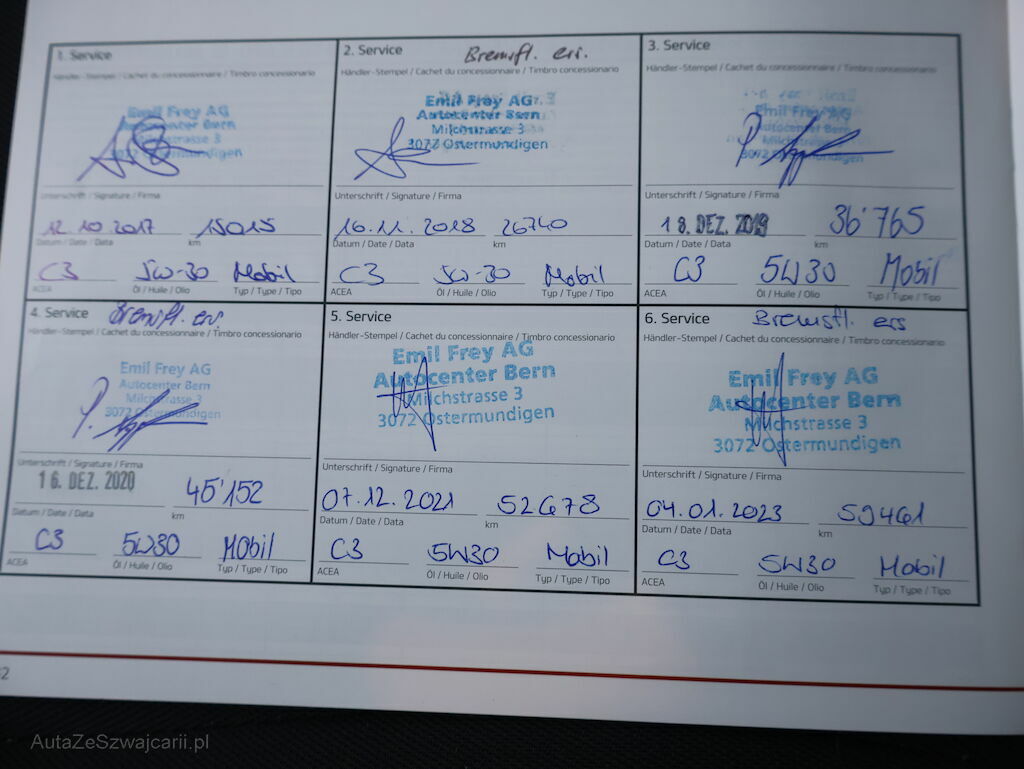 1. Service
Händler-Stempel / Cachet du concessionnaire / Timbro concessionario
Emil Frey AG
Autocenter Bern
Milchstrasse 3
3072 Ostermundigen
Unterschrift / Signature / Firma
12.10.2017 15015
Datum / Date / Data km
C3 5W-30 Mobil
ACEA Öl / Huile / Olio Typ / Type / Tipo
2. Service Bremsfl. ers.
Händler-Stempel / Cachet du concessionnaire / Timbro concessionario
Emil Frey AG
Autocenter Bern
Milchstrasse 3
3072 Ostermundigen
Unterschrift / Signature / Firma
16.11.2018 26740
Datum / Date / Data km
C3 5W-30 Mobil
ACEA Öl / Huile / Olio Typ / Type / Tipo
3. Service
Händler-Stempel / Cachet du concessionnaire / Timbro concessionario
Emil Frey AG
Autocenter Bern
Milchstrasse 3
3072 Ostermundigen
Unterschrift / Signature / Firma
18. DEZ. 2019 36'765
Datum / Date / Data km
C3 5W30 Mobil
ACEA Öl / Huile / Olio Typ / Type / Tipo
4. Service Bremsfl. ers.
Händler-Stempel / Cachet du concessionnaire / Timbro concessionario
Emil Frey AG
Autocenter Bern
Milchstrasse 3
3072 Ostermundigen
Unterschrift / Signature / Firma
16. DEZ. 2020 45'152
Datum / Date / Data km
C3 5W30 Mobil
ACEA Öl / Huile / Olio Typ / Type / Tipo
5. Service
Händler-Stempel / Cachet du concessionnaire / Timbro concessionario
Emil Frey AG
Autocenter Bern
Milchstrasse 3
3072 Ostermundigen
Unterschrift / Signature / Firma
07.12.2021 52678
Datum / Date / Data km
C3 5W30 Mobil
ACEA Öl / Huile / Olio Typ / Type / Tipo
6. Service Bremsfl. ers
Händler-Stempel / Cachet du concessionnaire / Timbro concessionario
Emil Frey AG
Autocenter Bern
Milchstrasse 3
3072 Ostermundigen
Unterschrift / Signature / Firma
04.01.2023 59461
Datum / Date / Data km
C3 5W30 Mobil
ACEA Öl / Huile / Olio Typ / Type / Tipo
AutaZeSzwajcarii.pl